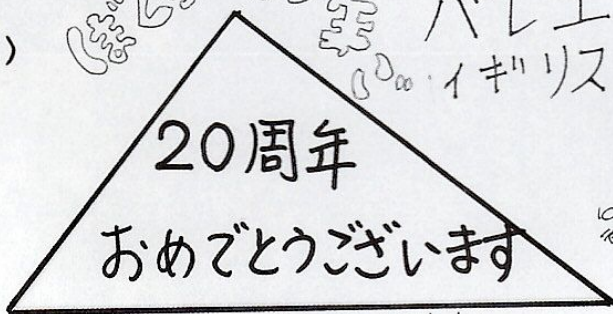 バレエ
イギリス
20周年
おめでとうございます